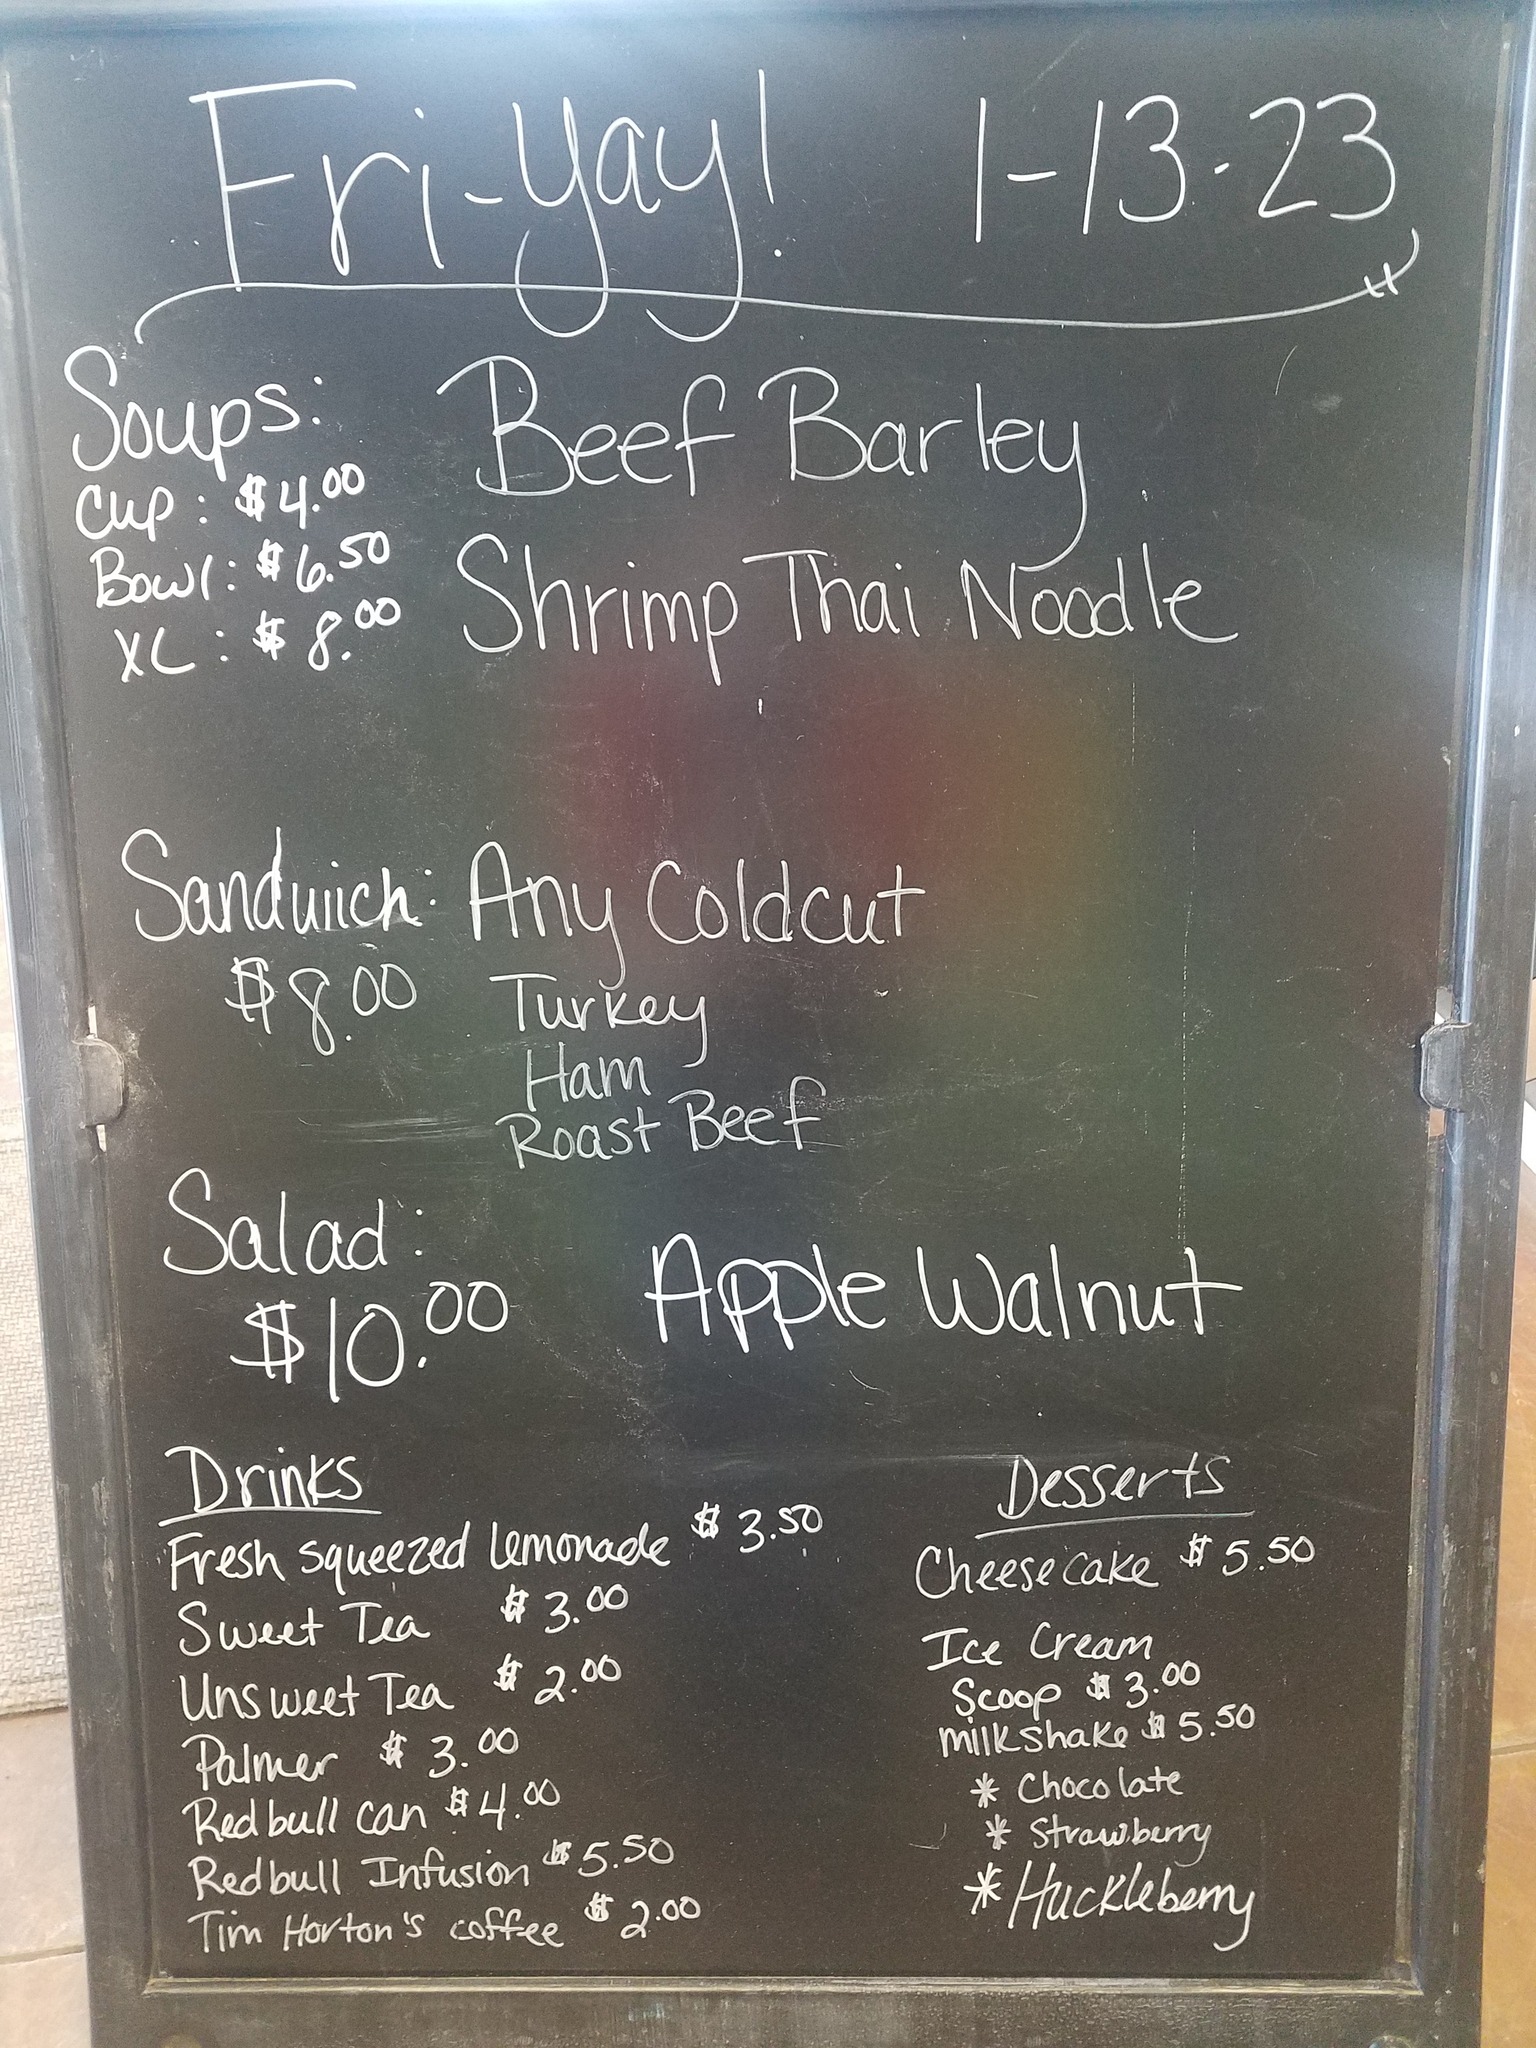 Fri-yay! 1-13-23
Soups: Beef Barley
Cup: $4.00
Bowl: $6.50
Shrimp Thai Noodle
XL: $8.00
Sandwich: Any Coldcut
$8.00
Turkey
Ham
Roast Beef
Salad:
$10.00
Apple Walnut
Drinks
Fresh squeezed lemonade $3.50
Sweet Tea $3.00
Unsweet Tea $2.00
Palmer $3.00
Redbull can $4.00
Redbull Infusion $5.50
Tim Horton's coffee $2.00
Desserts
Cheesecake $5.50
Ice Cream
Scoop $3.00
milkshake $5.50
* Chocolate
* Strawberry
* Huckleberry